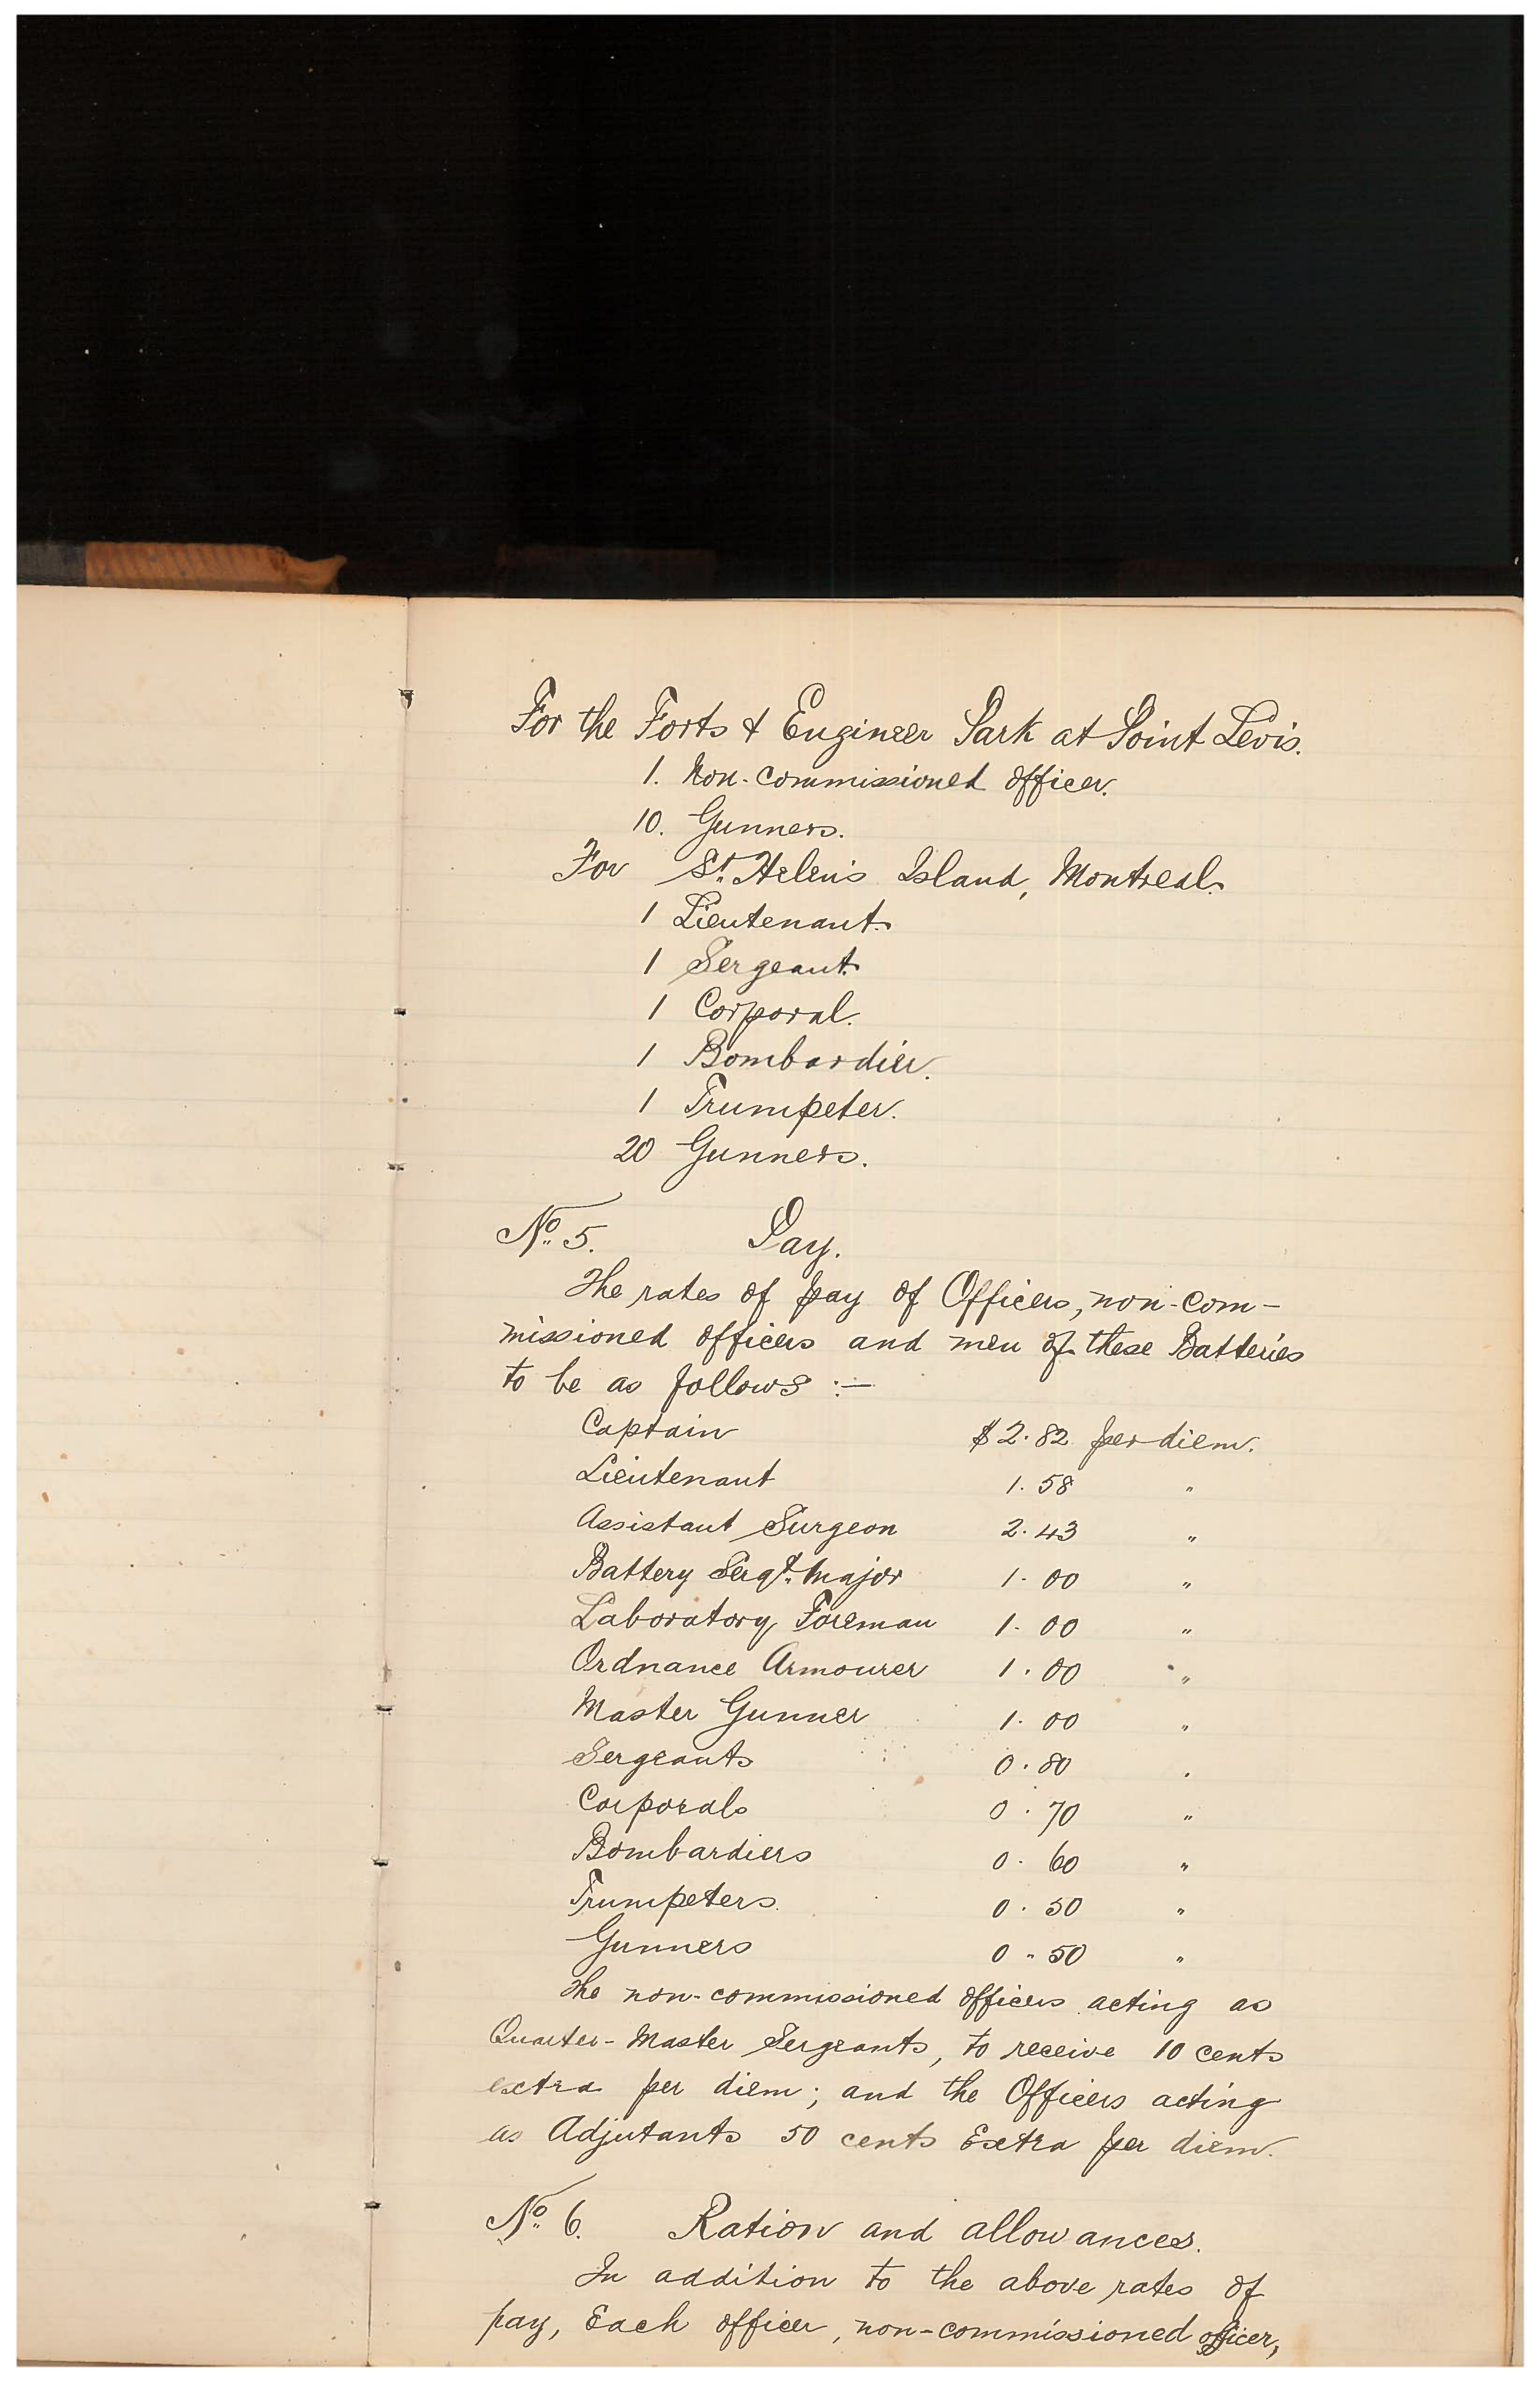 For the Forts & Engineer Park at Point Levis.
1. Non-commissioned officer.
10. Gunners.
For St. Helen's Island, Montreal.
1 Lieutenant.
1 Sergeant.
1 Corporal.
1 Bombardier.
1 Trumpeter.
20 Gunners.
No. 5. Pay.
The rates of pay of Officers, non-com-
missioned officers and men of these Batteries
to be as follows :—
Captain $2.82 per diem.
Lieutenant 1.58 "
Assistant Surgeon 2.43 "
Battery Sergt. Major 1.00 "
Laboratory Foreman 1.00 "
Ordnance Armourer 1.00 "
Master Gunner 1.00 "
Sergeants 0.80 "
Corporals 0.70 "
Bombardiers 0.60 "
Trumpeters 0.50 "
Gunners 0.50 "
The non-commissioned officers acting as
Quarter-Master Sergeants, to receive 10 cents
extra per diem; and the Officers acting
as Adjutants 50 cents Extra per diem.
No. 6. Ration and allowances.
In addition to the above rates of
pay, Each officer, non-commissioned officer,